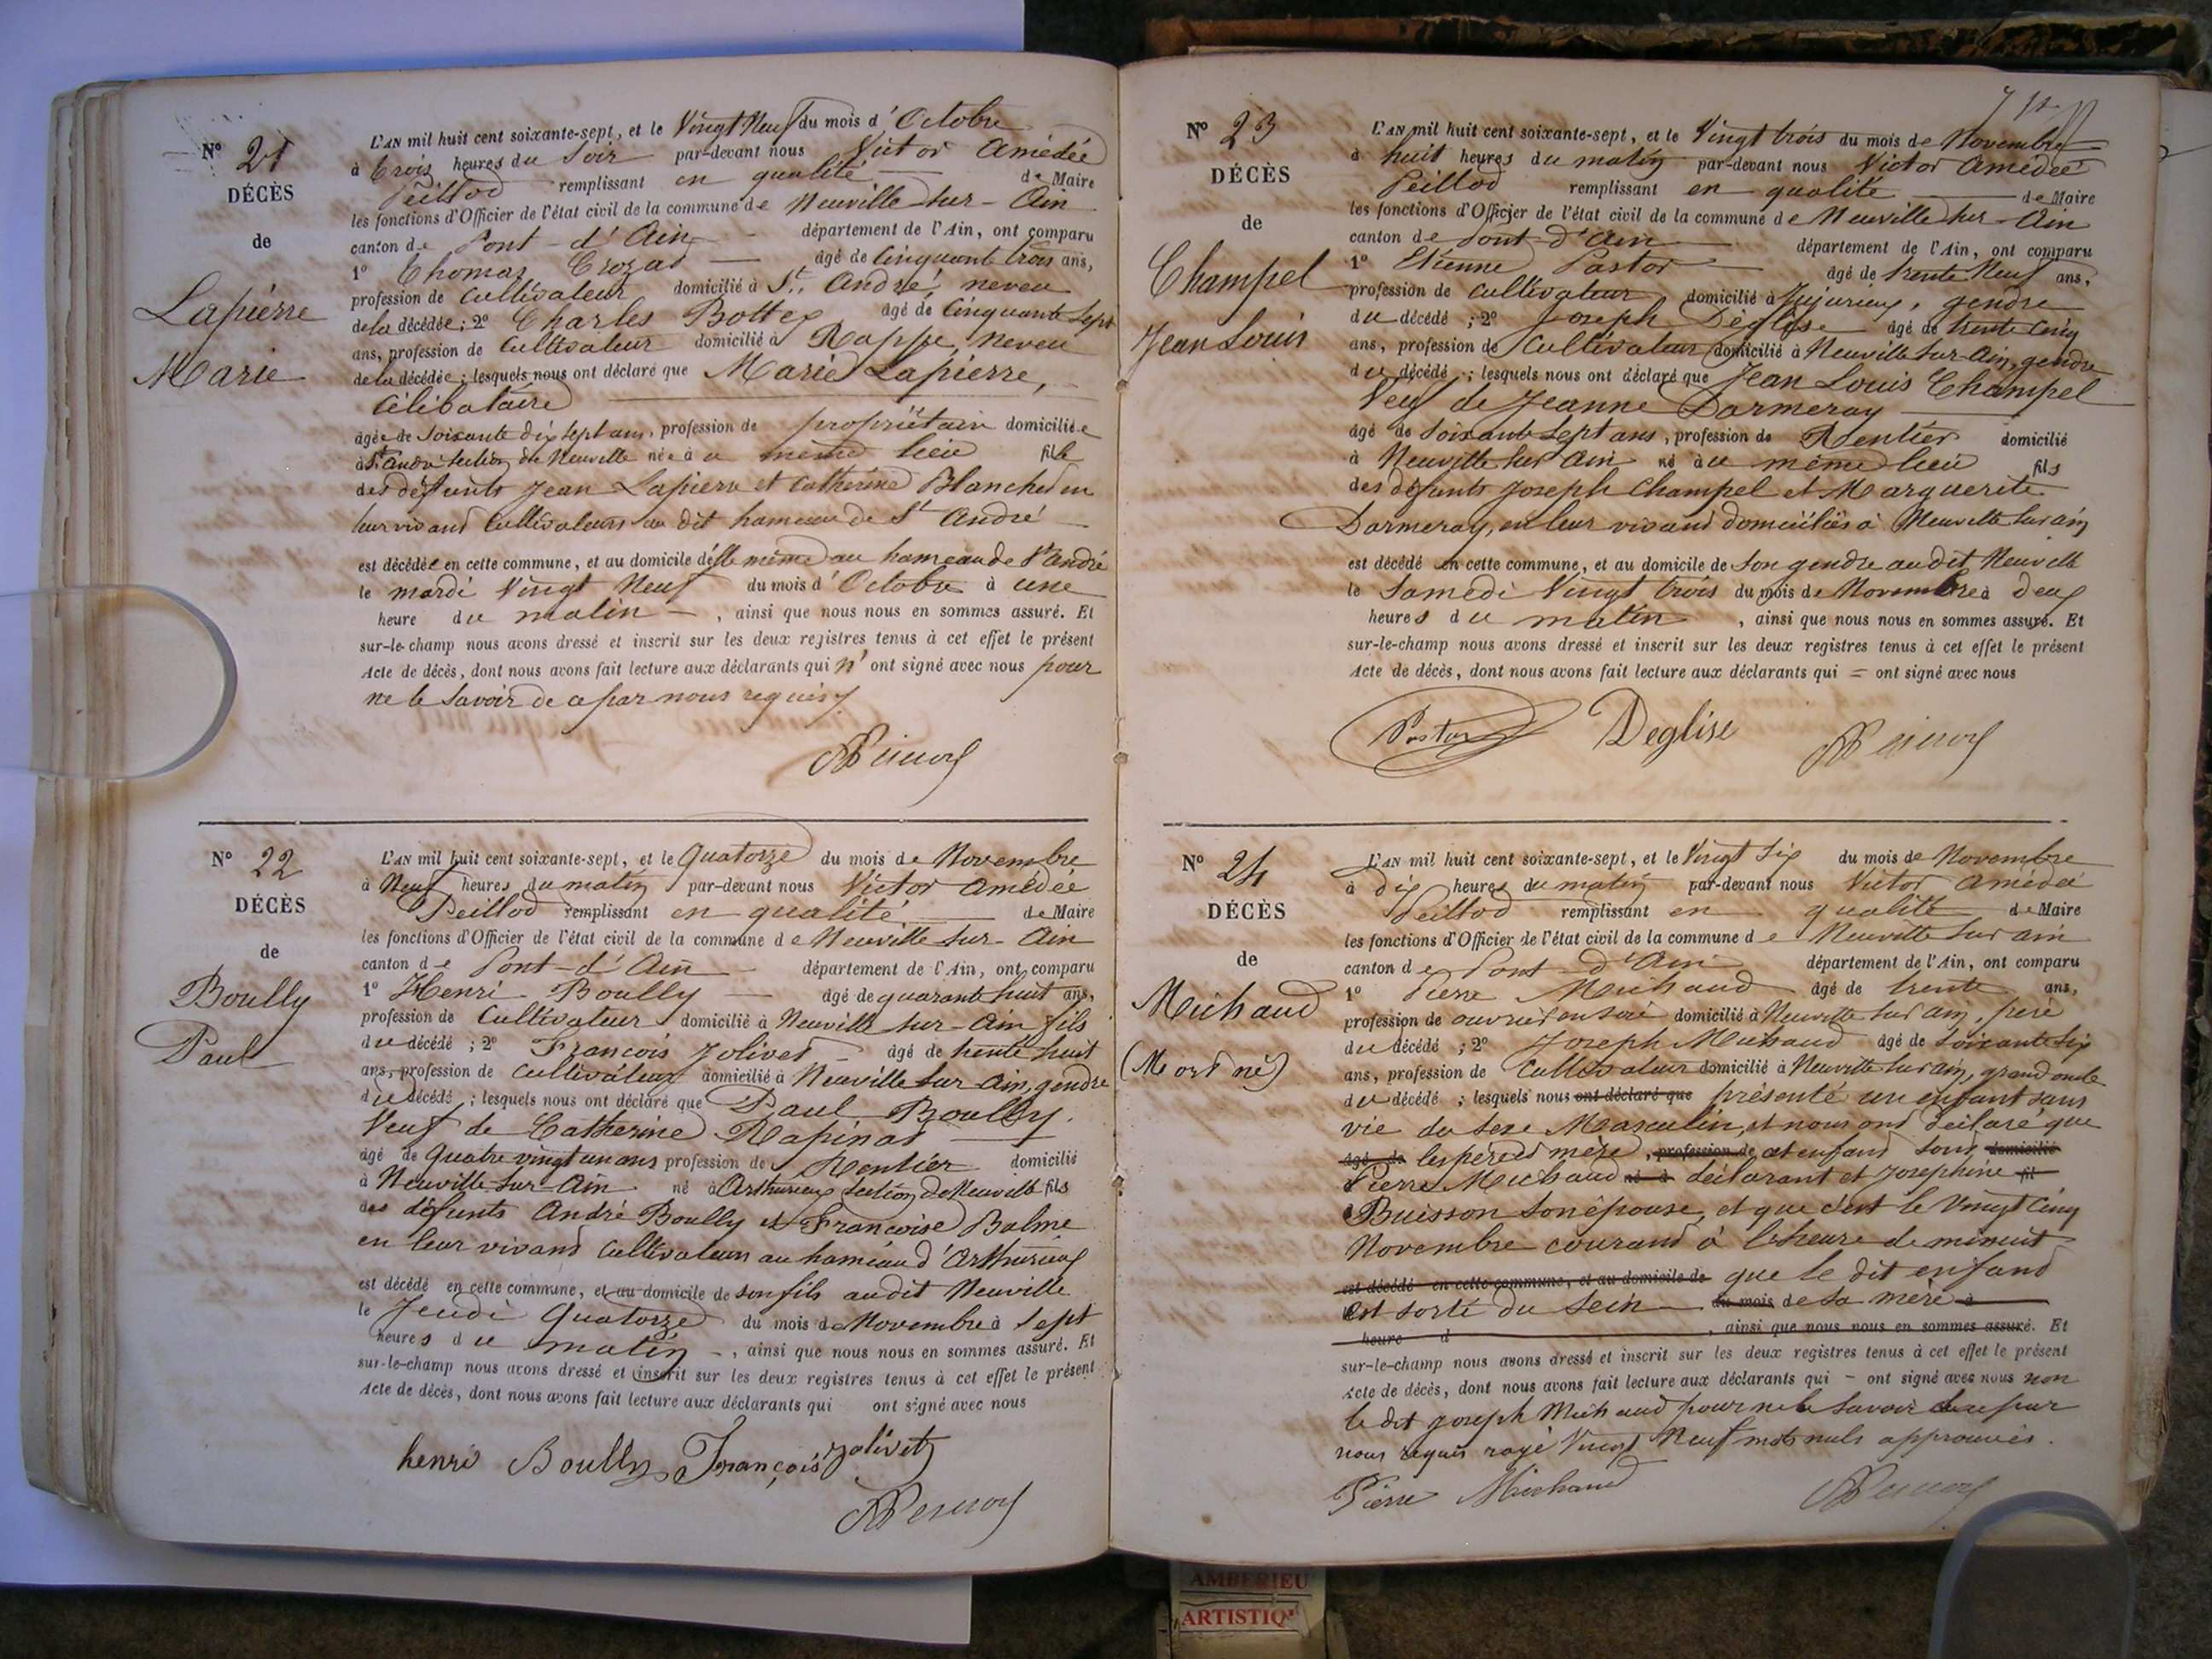 Nº 21
DÉCÈS
de
Lapierre
Marie
L'AN mil huit cent soixante-sept, et le Vingt Neuf du mois d'Octobre
à trois heures du Soir par-devant nous Victor Amédée
Peillod remplissant en qualité de Maire
les fonctions d'Officier de l'état civil de la commune de Neuville sur-Ain
canton de Pont-d'Ain département de l'Ain, ont comparu
1º Thomas Crozat âgé de Cinquante trois ans,
profession de Cultivateur domicilié à St. André, neveu
de la décédée; 2º Charles Bottex âgé de Cinquante Sept
ans, profession de Cultivateur domicilié à Rappe, Neveu
de la décédée; lesquels nous ont déclaré que Marie Lapierre,
Célibataire
âgée de Soixante dix sept ans, profession de propriétaire domiciliée
à St André section de Neuville née à ce même lieu fille
des défunts Jean Lapierre et Catherine Blanched en
leur vivant Cultivateurs au dit hameau de St André
est décédée en cette commune, et au domicile d'elle même au hameau de St André
le mardi Vingt Neuf du mois d'Octobre à une
heure du matin, ainsi que nous nous en sommes assuré. Et
sur-le-champ nous avons dressé et inscrit sur les deux registres tenus à cet effet le présent
Acte de décès, dont nous avons fait lecture aux déclarants qui n'ont signé avec nous pour
ne le savoir de ce par nous requis.
Nº 22
DÉCÈS
de
Boully
Paul
L'AN mil huit cent soixante-sept, et le Quatorze du mois de Novembre
à Neuf heures du matin par-devant nous Victor Amédée
Peillod remplissant en qualité de Maire
les fonctions d'Officier de l'état civil de la commune de Neuville sur-Ain
canton de Pont-d'Ain département de l'Ain, ont comparu
1º Henri Boully âgé de quarante huit ans,
profession de Cultivateur domicilié à Neuville sur-Ain fils
du décédé; 2º François Jolivet âgé de trente huit
ans, profession de Cultivateur domicilié à Neuville sur Ain, gendre
du décédé; lesquels nous ont déclaré que Paul Boully.
Veuf de Catherine Rapinat
âgé de Quatre vingt un ans profession de Rentier domicilié
à Neuville-sur-Ain né à Arthurieux section de Neuville fils
des défunts André Boully et Françoise Balme
en leur vivant Cultivateurs au hameau d'Arthurieux
est décédé en cette commune, et au domicile de son fils audit Neuville
le Jeudi Quatorze du mois de Novembre à sept
heures du matin, ainsi que nous nous en sommes assuré. Et
sur-le-champ nous avons dressé et inscrit sur les deux registres tenus à cet effet le présent
Acte de décès, dont nous avons fait lecture aux déclarants qui ont signé avec nous
henri Boully François jolivet
Nº 23
DÉCÈS
de
Champel
Jean Louis
L'AN mil huit cent soixante-sept, et le Vingt trois du mois de Novembre
à huit heures du matin par-devant nous Victor Amédée
Peillod remplissant en qualité de Maire
les fonctions d'Officier de l'état civil de la commune de Neuville sur-Ain
canton de Pont-D'Ain département de l'Ain, ont comparu
1º Etienne Pastor âgé de trente Neuf ans,
profession de Cultivateur domicilié à Jujurieux, gendre
du décédé; 2º Joseph Déglise âgé de trente cinq
ans, profession de Cultivateur domicilié à Neuville sur-Ain, gendre
du décédé; lesquels nous ont déclaré que Jean Louis Champel
Veuf de Jeanne Darmeray
âgé de Soixante sept ans, profession de Rentier domicilié
à Neuville sur Ain né à ce même lieu fils
des défunts Joseph Champel et Marguerite
Darmeray, en leur vivant domiciliés à Neuville sur ain
est décédé en cette commune, et au domicile de son gendre audit Neuville
le Samedi Vingt trois du mois de Novembre à deux
heures du matin, ainsi que nous nous en sommes assuré. Et
sur-le-champ nous avons dressé et inscrit sur les deux registres tenus à cet effet le présent
Acte de décès, dont nous avons fait lecture aux déclarants qui = ont signé avec nous
Pastor Deglise
Nº 24
DÉCÈS
de
Michaud
(Mort né)
L'AN mil huit cent soixante-sept, et le Vingt Six du mois de Novembre
à dix heures du matin par-devant nous Victor Amédée
Peillod remplissant en qualité de Maire
les fonctions d'Officier de l'état civil de la commune de Neuville sur ain
canton de Pont-d'Ain département de l'Ain, ont comparu
1º Pierre Michaud âgé de trente ans,
profession de ouvrier en soie domicilié à Neuville sur ain, père
du décédé; 2º Joseph Michaud âgé de Soixante Six
ans, profession de Cultivateur domicilié à Neuville sur ain, grand oncle
du décédé; lesquels nous ont déclaré que présenté un enfant sans
vie du sexe Masculin, et nous ont déclaré que
âgé de les père et mère, profession de cet enfant sont domicilié
à Pierre Michaud né à déclarant et Joséphine fil
Buisson son épouse, et que c'est le Vingt Cinq
Novembre courant à l'heure de minuit
est décédé en cette commune, et au domicile de que le dit enfant
est sorti du sein du mois de sa mère à
heure d , ainsi que nous nous en sommes assuré. Et
sur-le-champ nous avons dressé et inscrit sur les deux registres tenus à cet effet le présent
Acte de décès, dont nous avons fait lecture aux déclarants qui - ont signé avec nous non
le dit joseph Michaud pour ne le savoir de ce par
nous requis rayé Vingt Neuf mots nuls approuvés.
Pierre Michaud
AMBERIEU
ARTISTIQ